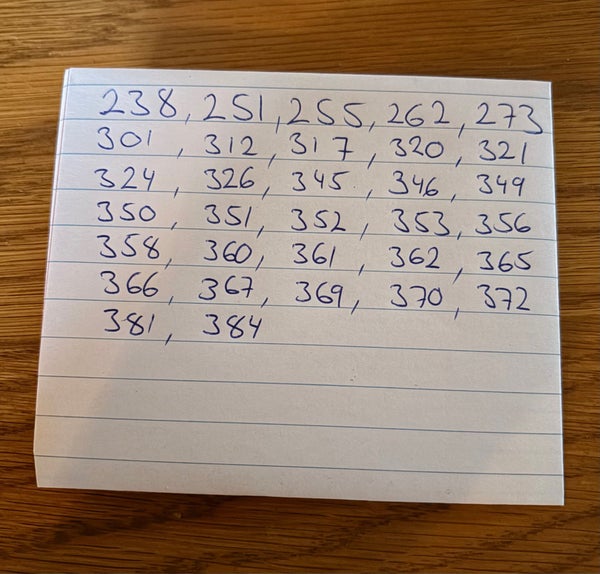 238, 251, 255, 262, 273
301, 312, 317, 320, 321
324, 326, 345, 346, 349
350, 351, 352, 353, 356
358, 360, 361, 362, 365
366, 367, 369, 370, 372
381, 384